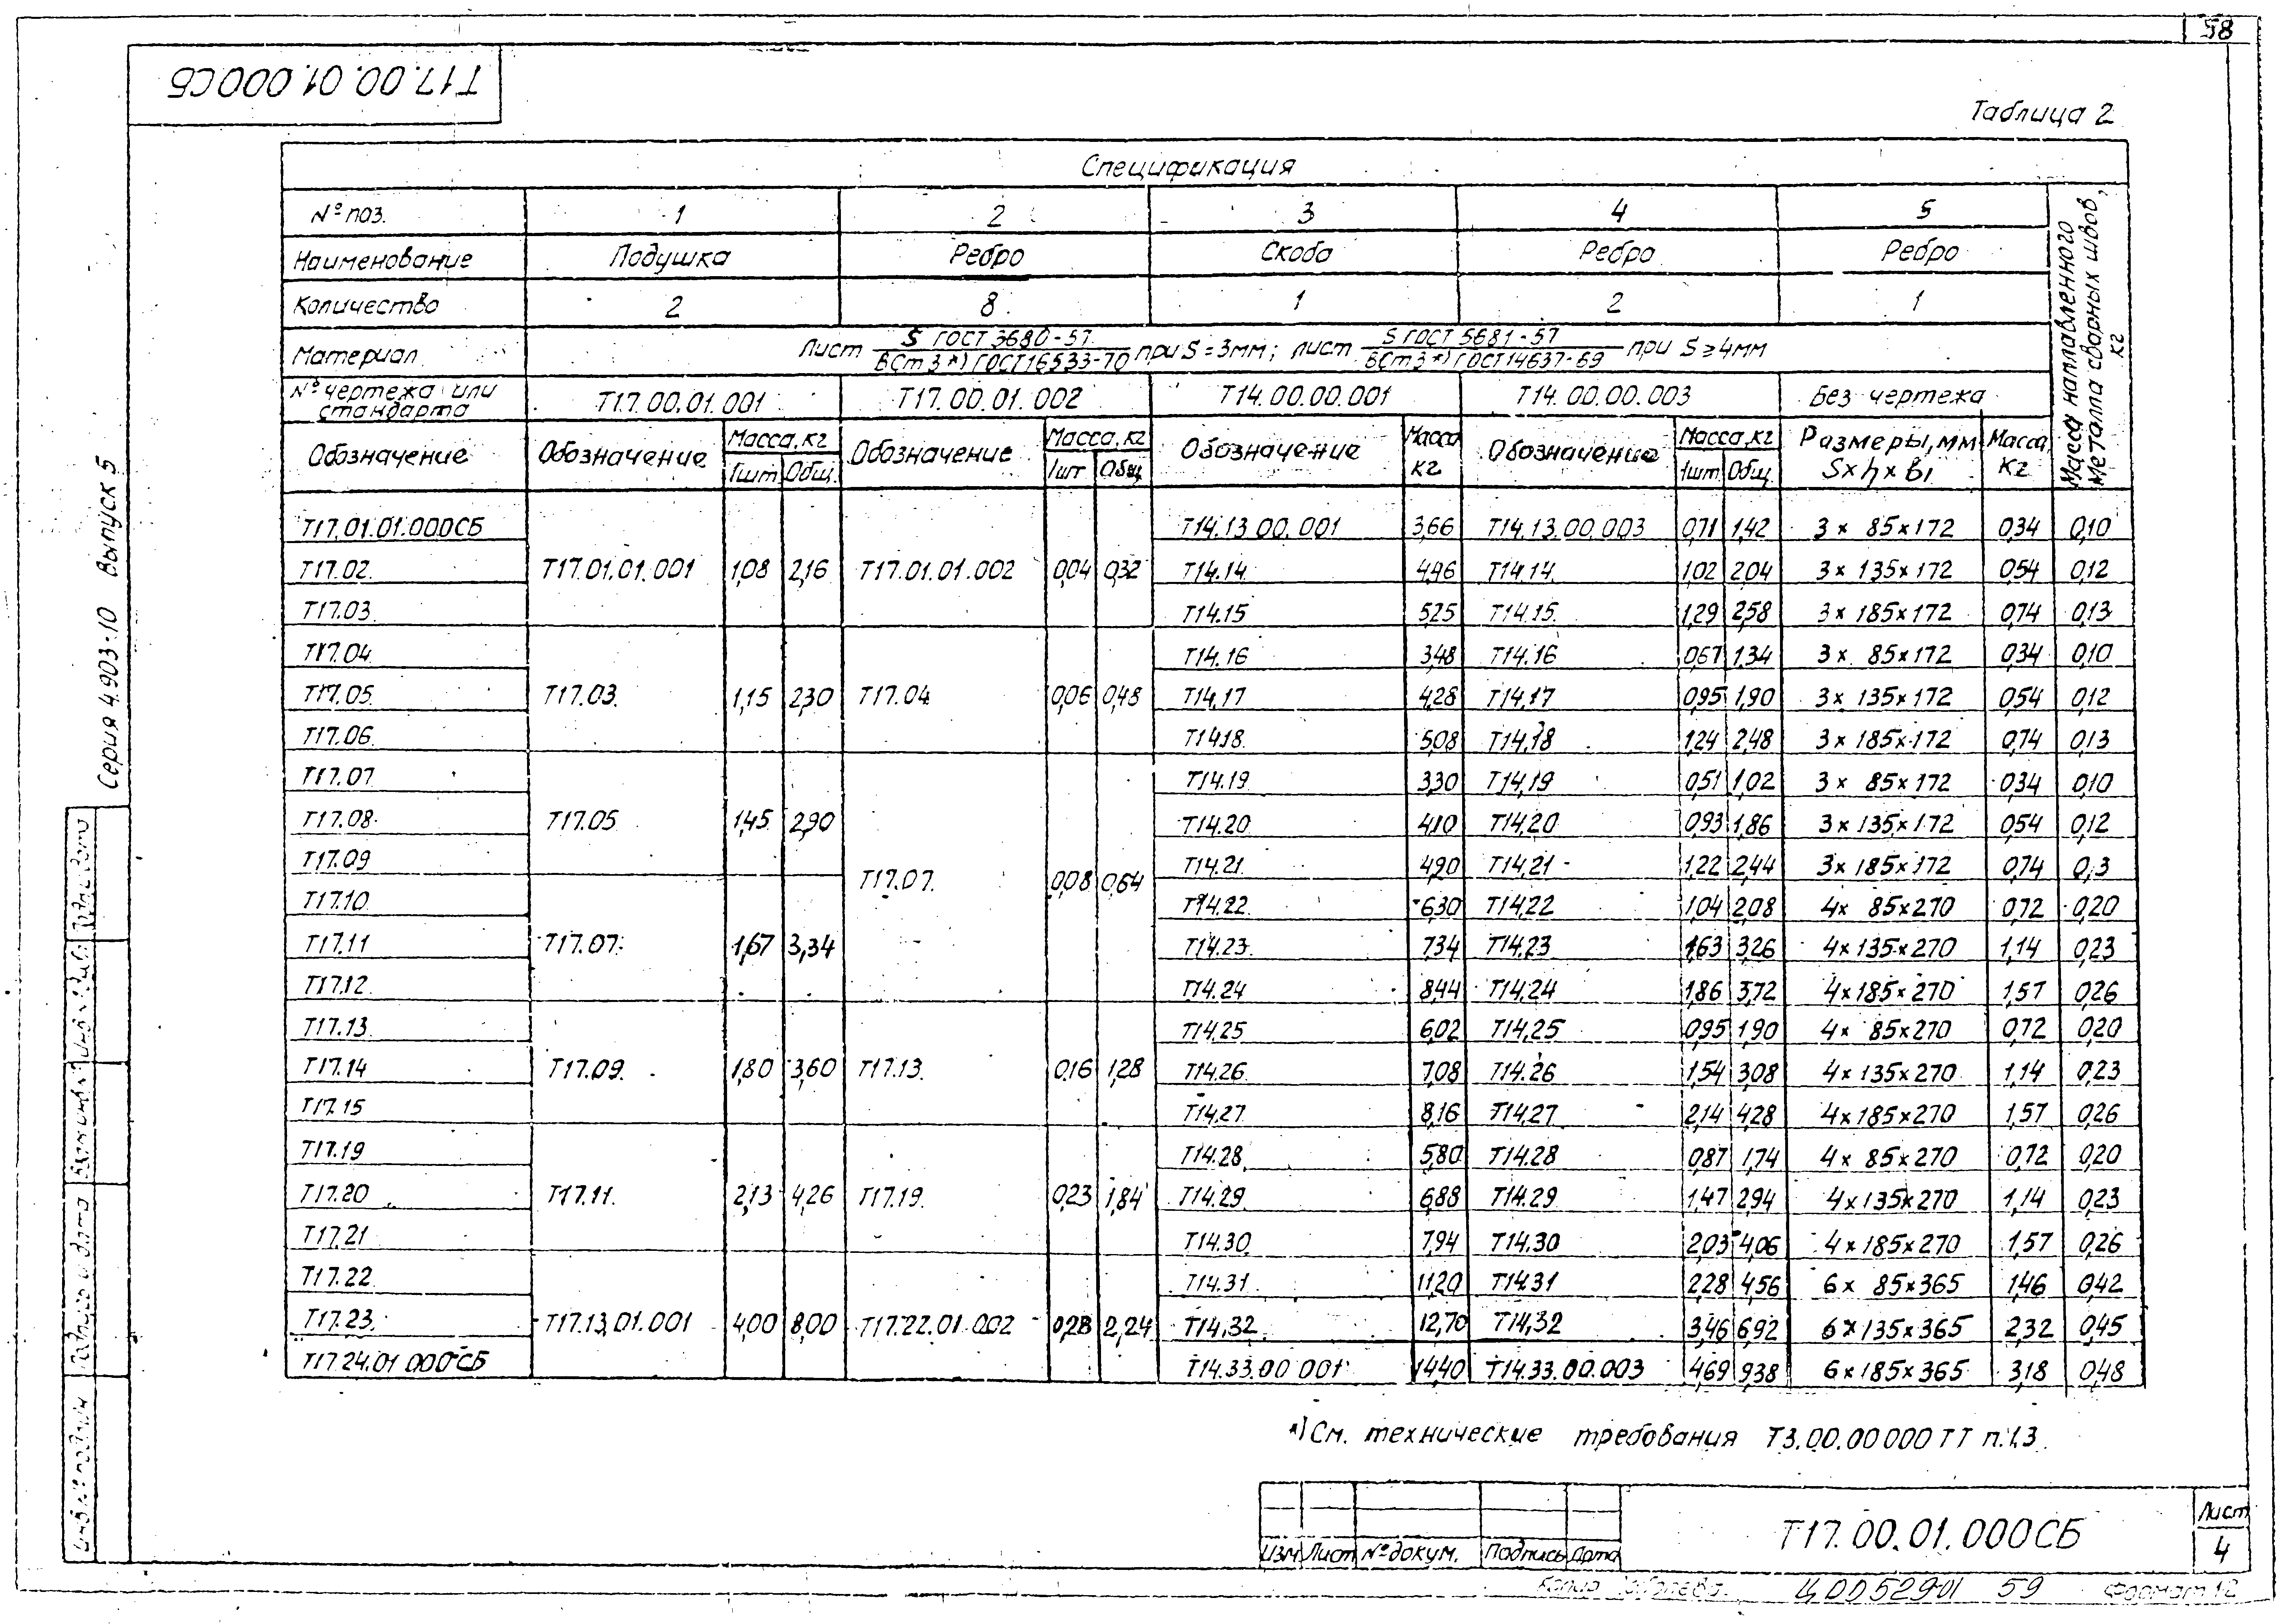 58
Т17.00.01.000СБ
Таблица 2
Серия 4.903-10 Выпуск 5
Спецификация
№ поз. 1 2 3 4 5
Наименование Подушка Ребро Скоба Ребро Ребро
Количество 2 8 1 2 1
Материал Лист S ГОСТ 3680-57 / ВСт3*) ГОСТ 16533-70 при S=3мм; лист S ГОСТ 5681-57 / ВСт3*) ГОСТ 14637-69 при S≥4мм
№ чертежа или стандарта Т17.00.01.001 Т17.00.01.002 Т14.00.00.001 Т14.00.00.003 Без чертежа
Масса наплавленного металла сварных швов, кг
Обозначение Обозначение Масса, кг Обозначение Масса, кг Обозначение Масса кг Обозначение Масса, кг Размеры, мм S×h×B1 Масса, кг
1шт Общ. 1шт Общ. 1шт Общ.
Т17.01.01.000СБ Т14.13.00.001 3,66 Т14.13.00.003 0,71 1,42 3× 85×172 0,34 0,10
Т17.02 Т17.01.01.001 1,08 2,16 Т17.01.01.002 0,04 0,32 Т14.14 4,46 Т14.14 1,02 2,04 3×135×172 0,54 0,12
Т17.03 Т14.15 5,25 Т14.15 1,29 2,58 3×185×172 0,74 0,13
Т17.04 Т14.16 3,48 Т14.16 0,67 1,34 3× 85×172 0,34 0,10
Т17.05 Т17.03 1,15 2,30 Т17.04 0,06 0,48 Т14.17 4,28 Т14.17 0,95 1,90 3×135×172 0,54 0,12
Т17.06 Т14.18 5,08 Т14.18 1,24 2,48 3×185×172 0,74 0,13
Т17.07 Т14.19 3,30 Т14.19 0,51 1,02 3× 85×172 0,34 0,10
Т17.08 Т17.05 1,45 2,90 Т14.20 4,10 Т14.20 0,93 1,86 3×135×172 0,54 0,12
Т17.09 Т17.07 0,08 0,64 Т14.21 4,90 Т14.21 1,22 2,44 3×185×172 0,74 0,13
Т17.10 Т14.22 6,30 Т14.22 1,04 2,08 4× 85×270 0,72 0,20
Т17.11 Т17.07 1,67 3,34 Т14.23 7,34 Т14.23 1,63 3,26 4×135×270 1,14 0,23
Т17.12 Т14.24 8,44 Т14.24 1,86 3,72 4×185×270 1,57 0,26
Т17.13 Т14.25 6,02 Т14.25 0,95 1,90 4× 85×270 0,72 0,20
Т17.14 Т17.09 1,80 3,60 Т17.13 0,16 1,28 Т14.26 7,08 Т14.26 1,54 3,08 4×135×270 1,14 0,23
Т17.15 Т14.27 8,16 Т14.27 2,14 4,28 4×185×270 1,57 0,26
Т17.19 Т14.28 5,80 Т14.28 0,87 1,74 4× 85×270 0,72 0,20
Т17.20 Т17.11 2,13 4,26 Т17.19 0,23 1,84 Т14.29 6,88 Т14.29 1,47 2,94 4×135×270 1,14 0,23
Т17.21 Т14.30 7,94 Т14.30 2,03 4,06 4×185×270 1,57 0,26
Т17.22 Т14.31 11,20 Т14.31 2,28 4,56 6× 85×365 1,46 0,42
Т17.23 Т17.13.01.001 4,00 8,00 Т17.22.01.002 0,28 2,24 Т14.32 12,70 Т14.32 3,46 6,92 6×135×365 2,32 0,45
Т17.24.01.000СБ Т14.33.00.001 14,40 Т14.33.00.003 4,69 9,38 6×185×365 3,18 0,48
*) См. технические требования Т3.00.00000 ТТ п.1.3
Изм Лист № докум. Подпись Дата
Т17.00.01.000СБ
Лист
4
Инв № подлин Подпись и дата
Копир ЦОО529-01 59 Формат 12